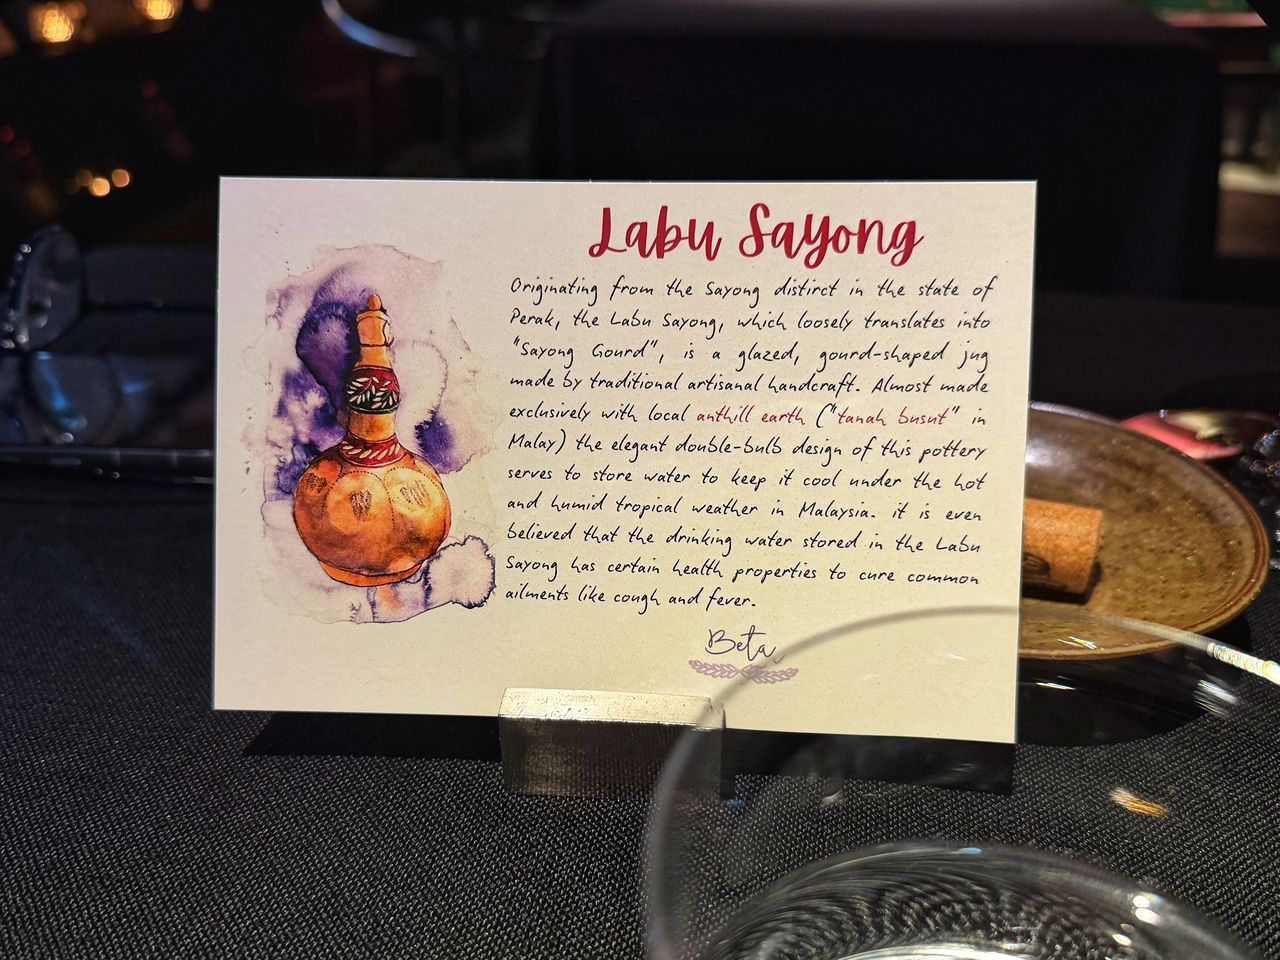 Labu Sayong
Originating from the Sayong distirct in the state of
Perak, the Labu Sayong, which loosely translates into
"Sayong Gourd", is a glazed, gourd-shaped jug
made by traditional artisanal handcraft. Almost made
exclusively with local anthill earth ("tanah busut" in
Malay) the elegant double-bulb design of this pottery
serves to store water to keep it cool under the hot
and humid tropical weather in Malaysia. it is even
believed that the drinking water stored in the Labu
Sayong has certain health properties to cure common
ailments like cough and fever.
Beta